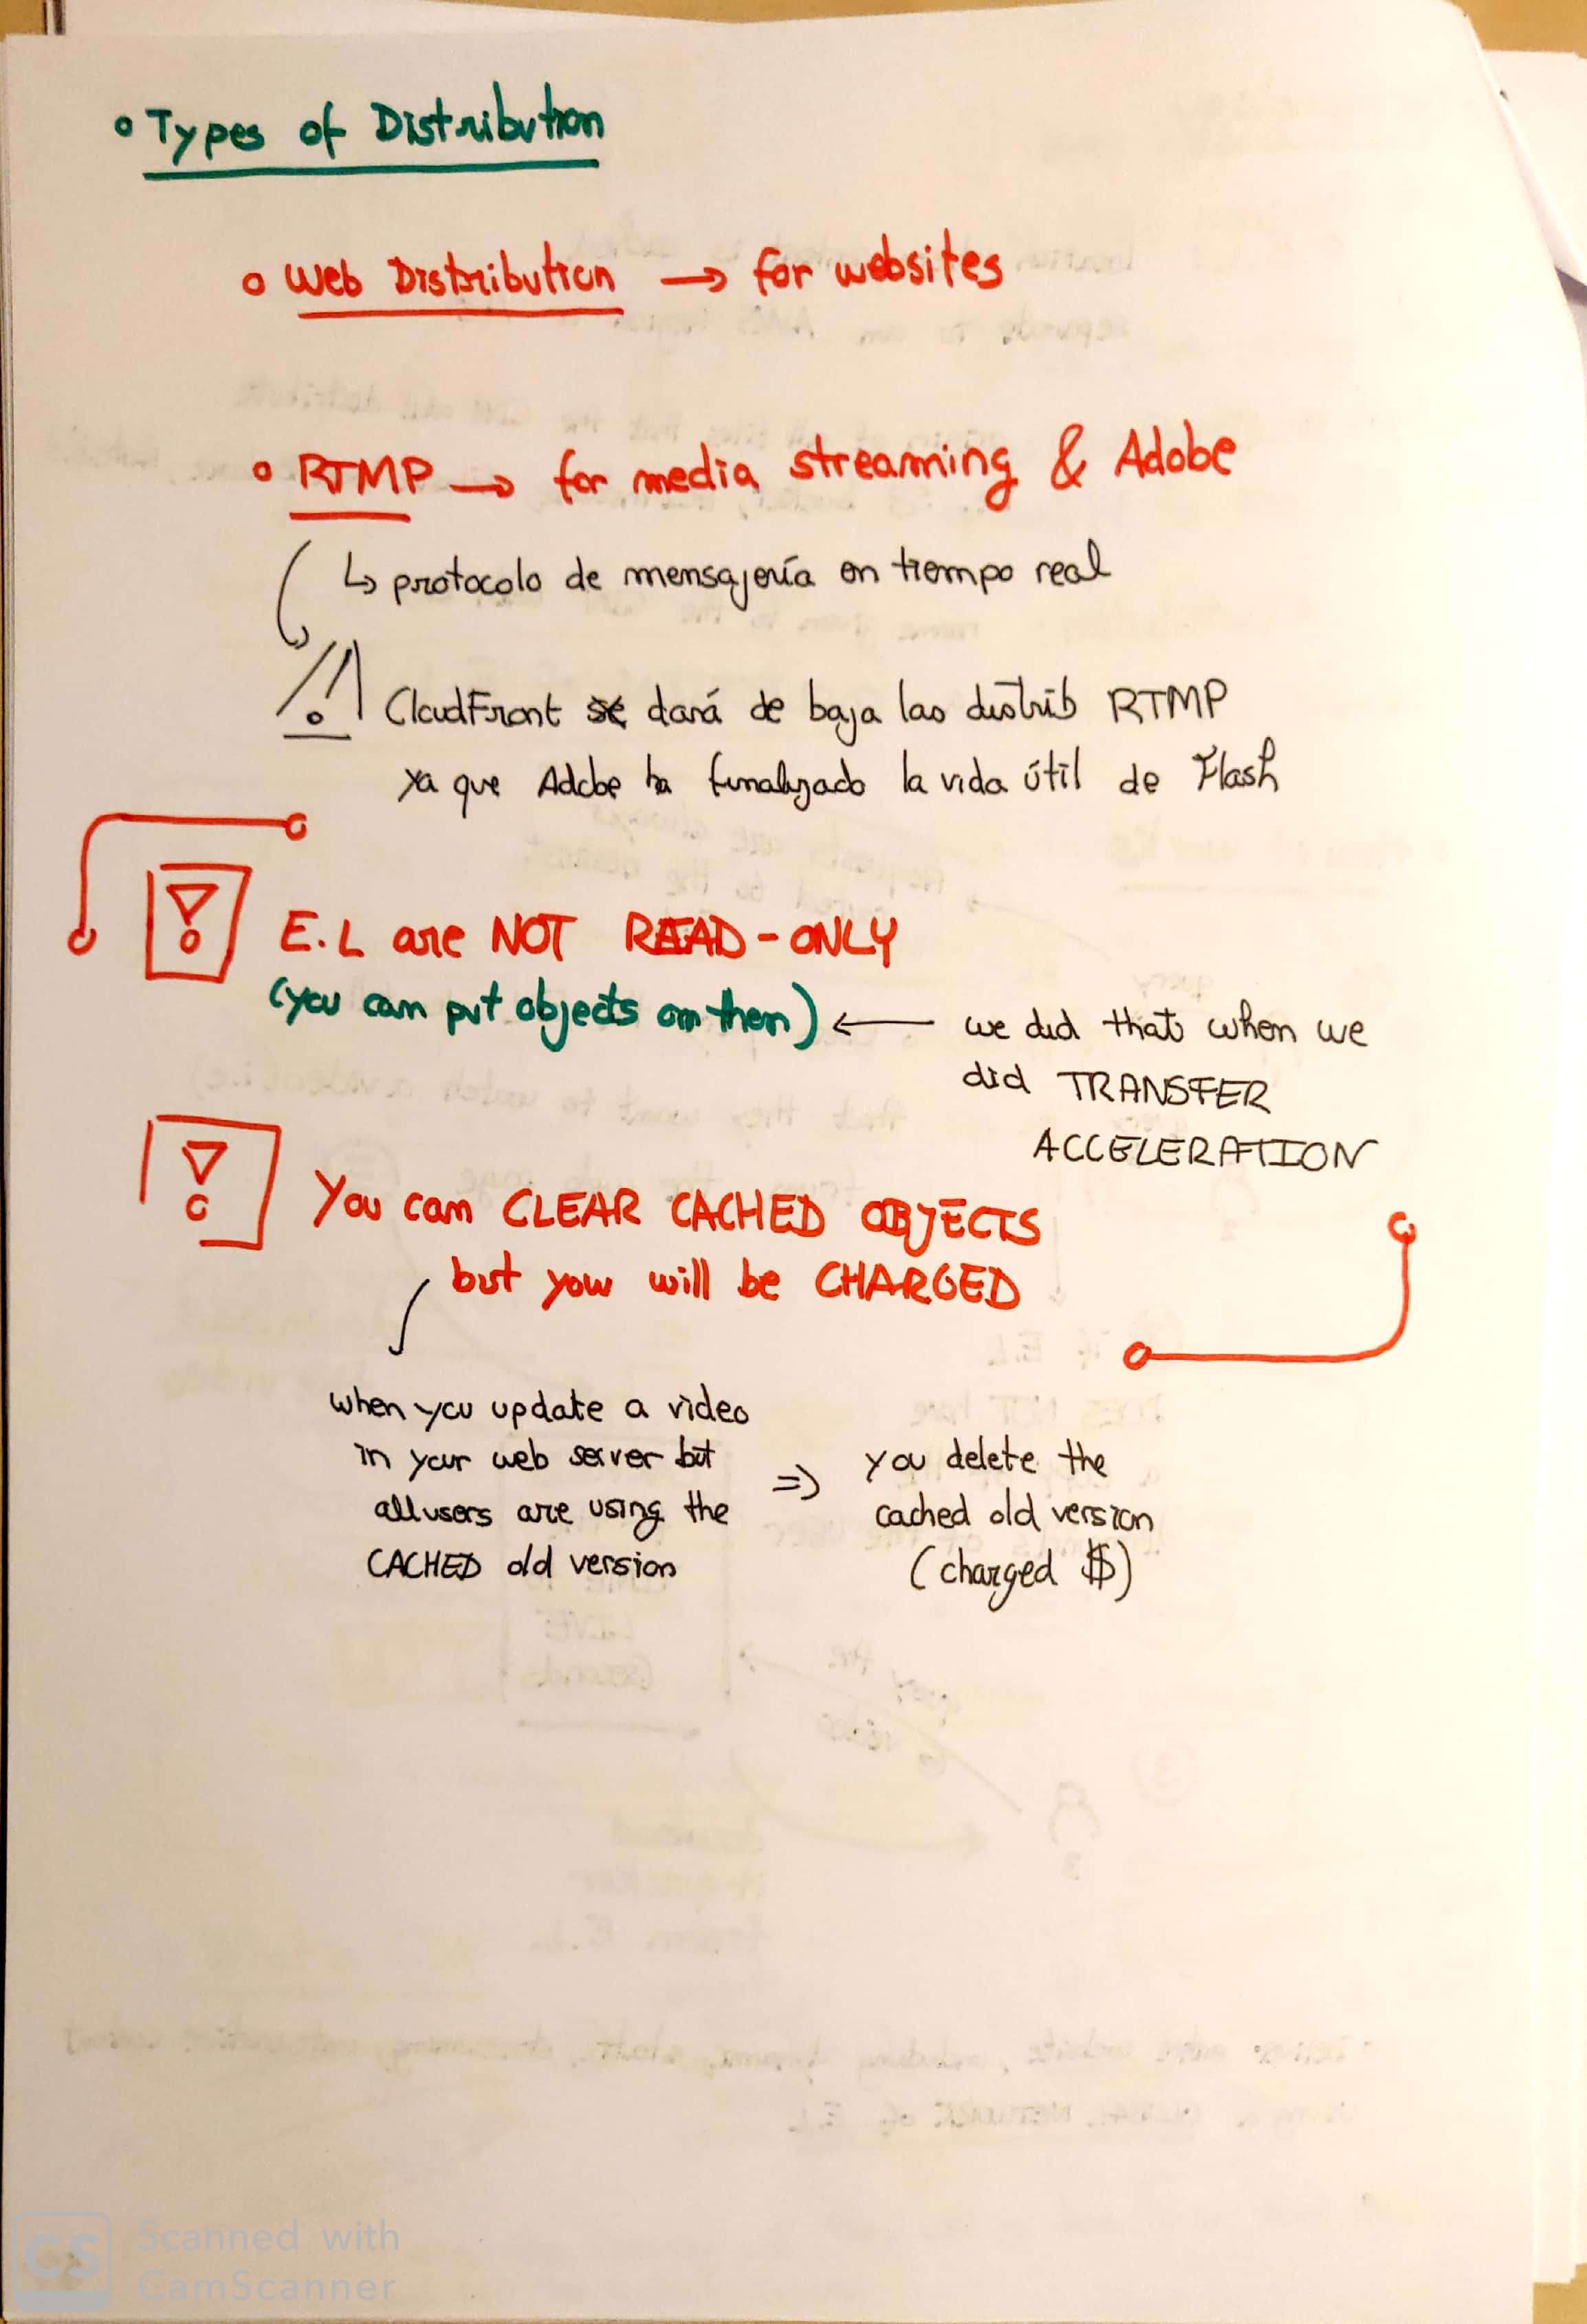 Types of Distribution
Web Distribution → for websites
RTMP → for media streaming & Adobe
↳ protocolo de mensajería en tiempo real
CloudFront se dará de baja las distrib RTMP
ya que Adobe ha finalizado la vida útil de Flash
E.L are NOT READ-ONLY
(you can put objects on them) ← we did that when we
did TRANSFER
ACCELERATION
You can CLEAR CACHED OBJECTS
but you will be CHARGED
when you update a video
in your web server but
all users are using the
CACHED old version
⇒ you delete the
cached old version
(charged $)
CS Scanned with
CamScanner